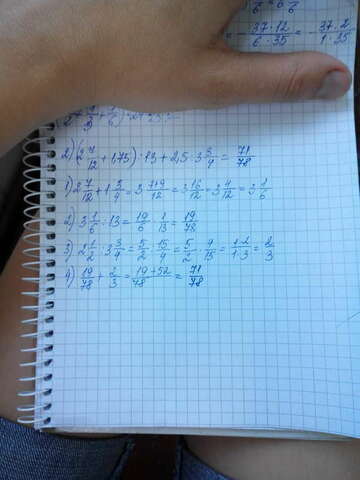 = - 37·12/6·35 = - 37·2/1·35
2) (2 7/12 + 1,75) : 13 + 2,5 : 3 3/4 = 71/78
1) 2 7/12 + 1 3/4 = 3 7+9/12 = 3 16/12 = 3 4/12 = 3 1/6
2) 3 1/6 : 13 = 19/6 · 1/13 = 19/78
3) 2 1/2 : 3 3/4 = 5/2 : 15/4 = 5/2 · 4/15 = 1·2/1·3 = 2/3
4) 19/78 + 2/3 = 19+52/78 = 71/78